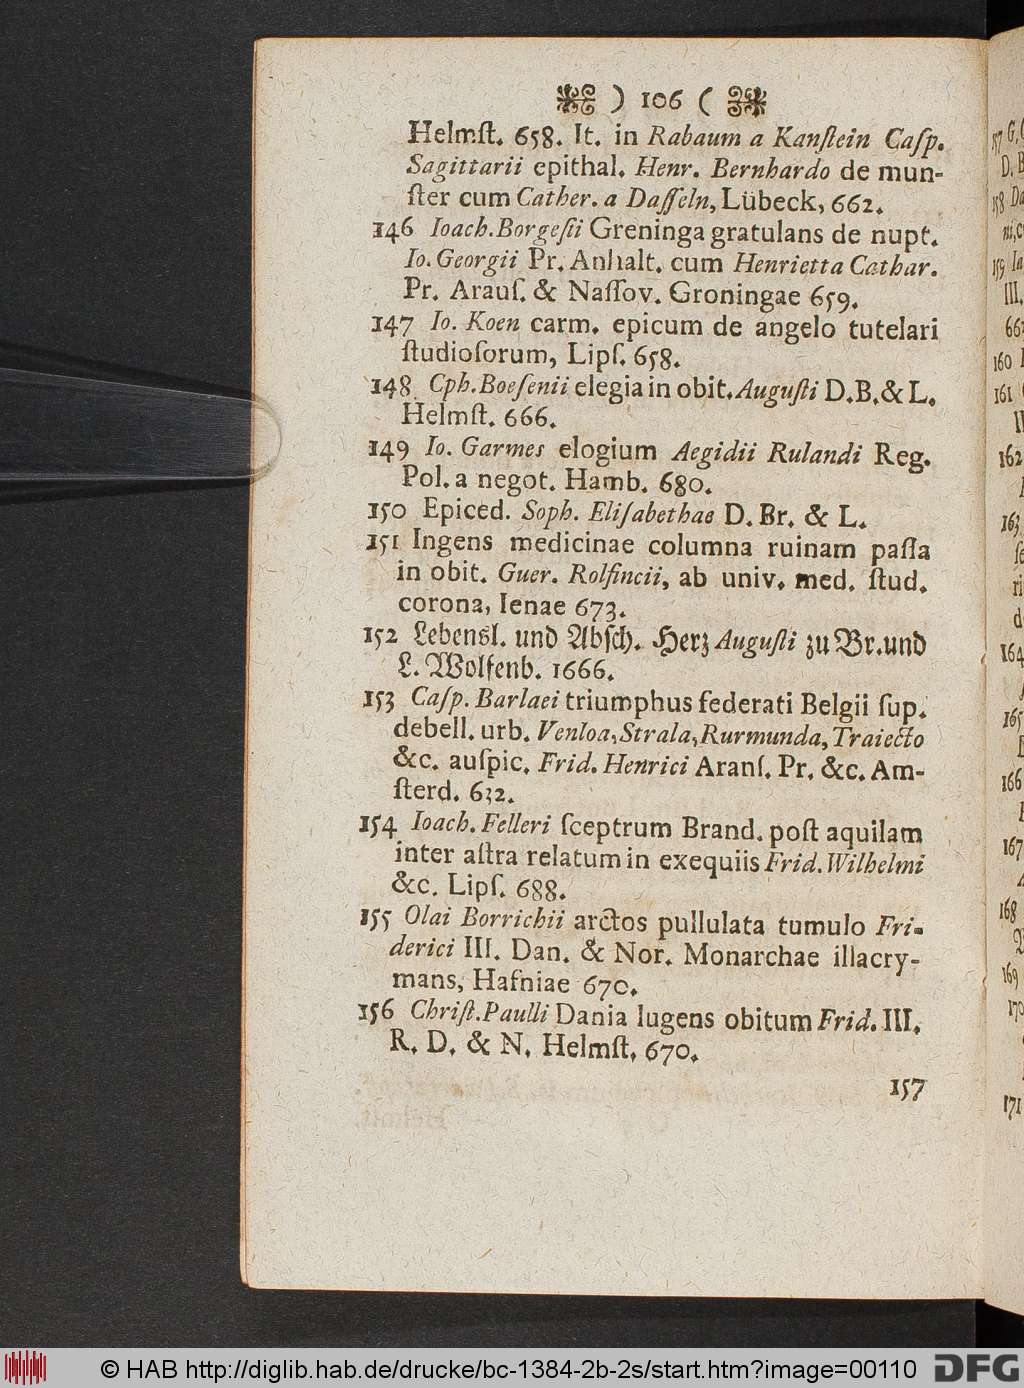 ) 106 (
Helmſt. 658. It. in Rabaum a Kanſtein Caſp.
Sagittarii epithal. Henr. Bernhardo de mun-
ſter cum Cather. a Daſſeln, Lübeck, 662.
146 Ioach. Borgeſii Greninga gratulans de nupt.
Io. Georgii Pr. Anhalt. cum Henrietta Cathar.
Pr. Arauſ. & Naſſov. Groningae 659.
147 Io. Koen carm. epicum de angelo tutelari
ſtudioſorum, Lipſ. 658.
148 Cph. Boeſenii elegia in obit. Auguſti D.B.& L.
Helmſt. 666.
149 Io. Garmes elogium Aegidii Rulandi Reg.
Pol. a negot. Hamb. 680.
150 Epiced. Soph. Eliſabethae D. Br. & L.
151 Ingens medicinae columna ruinam paſſa
in obit. Guer. Rolfincii, ab univ. med. ſtud.
corona, Ienae 673.
152 Lebensl. und Abſch. Herz Auguſti zu Br. und
L. Wolfenb. 1666.
153 Caſp. Barlaei triumphus federati Belgii ſup.
debell. urb. Venloa, Strala, Rurmunda, Traiecto
&c. auſpic. Frid. Henrici Aranſ. Pr. &c. Am-
ſterd. 632.
154 Ioach. Felleri ſceptrum Brand. poſt aquilam
inter aſtra relatum in exequiis Frid. Wilhelmi
&c. Lipſ. 688.
155 Olai Borrichii arctos pullulata tumulo Fri-
derici III. Dan. & Nor. Monarchae illacry-
mans, Hafniae 670.
156 Chriſt. Paulli Dania lugens obitum Frid. III.
R. D. & N. Helmſt. 670.
157
160
161
162
163
164
166
167
168
169
171
© HAB http://diglib.hab.de/drucke/bc-1384-2b-2s/start.htm?image=00110
DFG